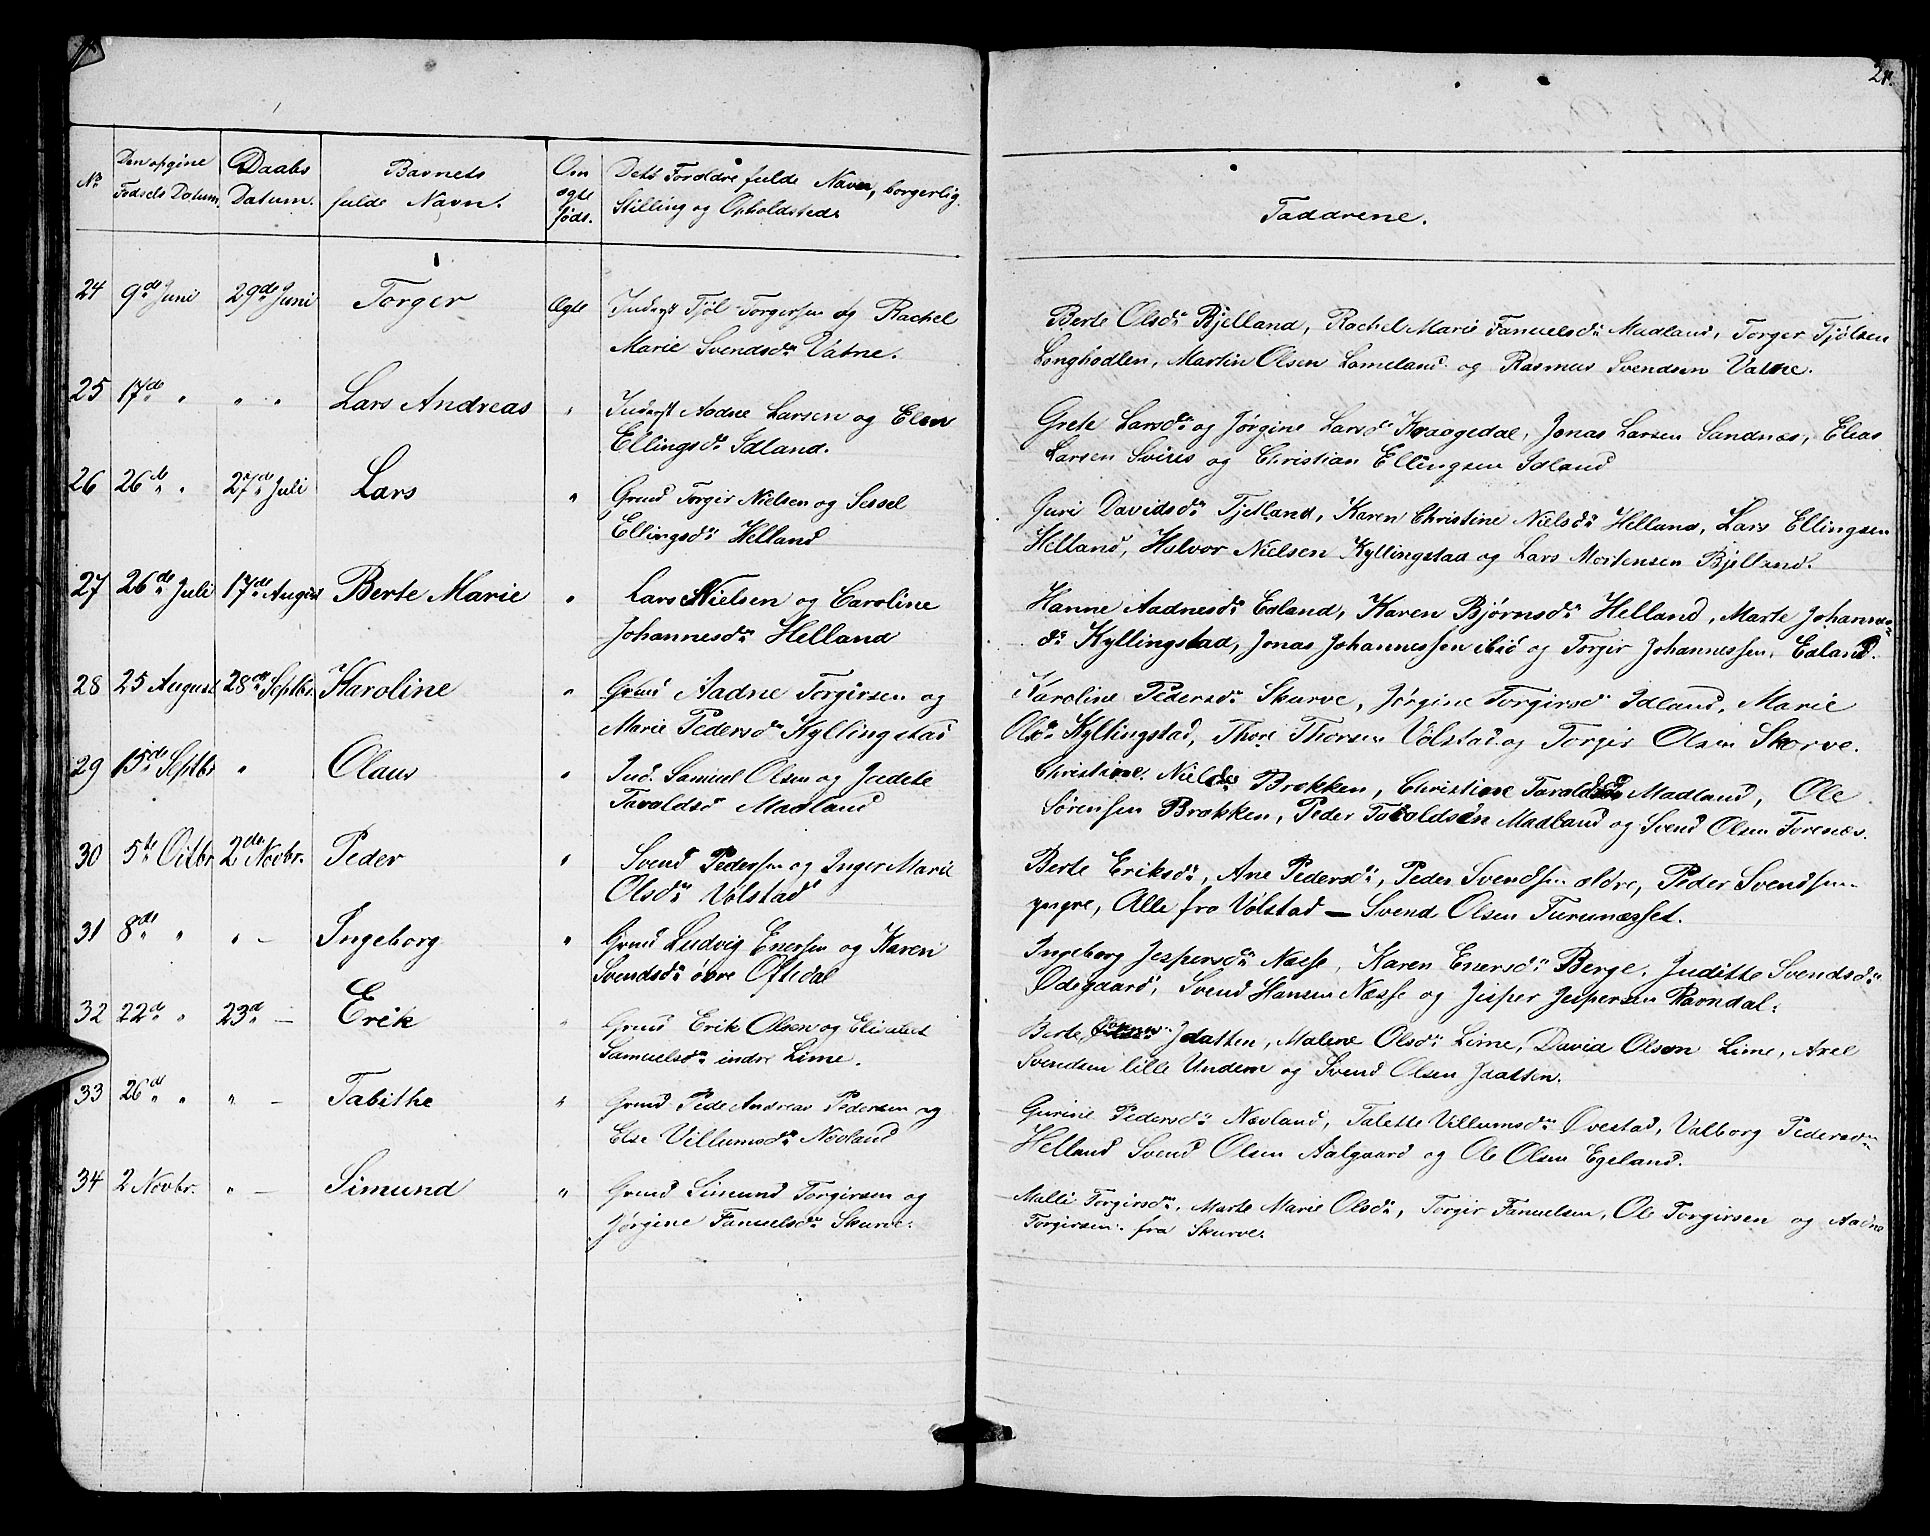 21.
No
Den opgivne
Fødsels Datum.
Daabs
Datum.
Barnets
fulde Navn.
Om
ægte
føds.
Dets Forældre fulde Navn, borgerlig
Stilling og Opholdsted.
Faddrene.
24 9de Juni 29de Juni Torger Ægte Inderst Tjöl Torgersen og Rachel
Marie Svendsdr Vatne.
Berte Olsdr Bjelland, Rachel Marie Famuelsdr Madland, Torger Tjölsen
Longhodlen, Martin Olsen Lomeland og Rasmus Svendsen Vatne.
25 17de " " " Lars Andreas " Inderst Aadne Larsen og Elen
Ellingsdr Idland.
Grete Larsdr og Jørgine Larsdr Kraagedal, Jonas Larsen Sandnæs, Elias
Larsen Svires og Christian Ellingsen Idland
26 26de " 27de Juli Lars " Grmd Torgir Nielsen og Sessel
Ellingsdr Helland
Guri Davidsdr Tjetland, Karen Christine Nielsdr Helland, Lars Ellingsen
Helland, Halvor Nielsen Kyllingstad og Lars Mortensen Bjelland.
27 26de Juli 17de August Berte Marie " Lars Nielsen og Caroline
Johannesdr Helland
Hanne Aadnesdr Edland, Karen Bjørnsdr Helland, Marte Johannes-
dr Kyllingstad, Jonas Johannessen ibid og Torgir Johannessen, Edland.
28 25 August 28de Septbr. Karoline " Grmd Aadne Torgirsen og
Marie Pedersdr Kyllingstad
Karoline Pedersdr Skurve, Jørgine Torgirsd Idland, Marie
Olsdr Kyllingstad, Thore Thorsen Vølstad og Torgir Olsen Skorve.
29 15de Septbr " Olaus " Ind. Samuel Olsen og Judete
Tavaldsd Madland
Christine Nielsdr Brekken, Christine Taraldsd Madland, Ole
Sørensen Brekken, Peder Toraldsen Madland og Svend Olsen Torenæs.
30 5te Octbr 2de Novbr. Peder " Svend Pedersen og Inger Marie
Olsdr Vølstad
Berte Eriksdr, Ane Pedersdr, Peder Svendsen eldre, Peder Svendsen
yngre, Alle fra Vølstad — Svend Olsen Turunæsset.
31 8de " " — Ingeborg " Grmd Ludvig Enersen og Karen
Svendsdr øvre Oftedal
Ingeborg Jespersdr Næsse, Karen Enersdr Berge, Juditte Svendsdr
Ødegaard, Svend Hansen Næsse og Jesper Jespersen Ravndal.
32 22de " 23d — Erik " Grmd Erik Olsen og Elisabet
Samuelsdr indre Lime.
Berte Jdatten, Malene Olsdr Lime, David Olsen Lime, Axel
Svendsen lille Undem og Svend Olsen Jdatten.
33 26de " " — Tabithe " Grmd Pede Andreas Pedersen og
Else Villumsdr Nedland
Gurine Pedersdr Nevland, Talette Villumsdr Øvestad, Valborg Pedersdr
Helland Svend Olsen Aalgaard og Ole Olsen Egeland.
34 2 Novbr. " — Simund " Grmd Simund Torgirsen og
Jørgine Famuelsdr Skurve.
Malli Torgirsdr, Marte Marie Olsdr, Torgir Famuelsen, Ole Torgirsen og Aadne
Torgirsen fra Skurve.